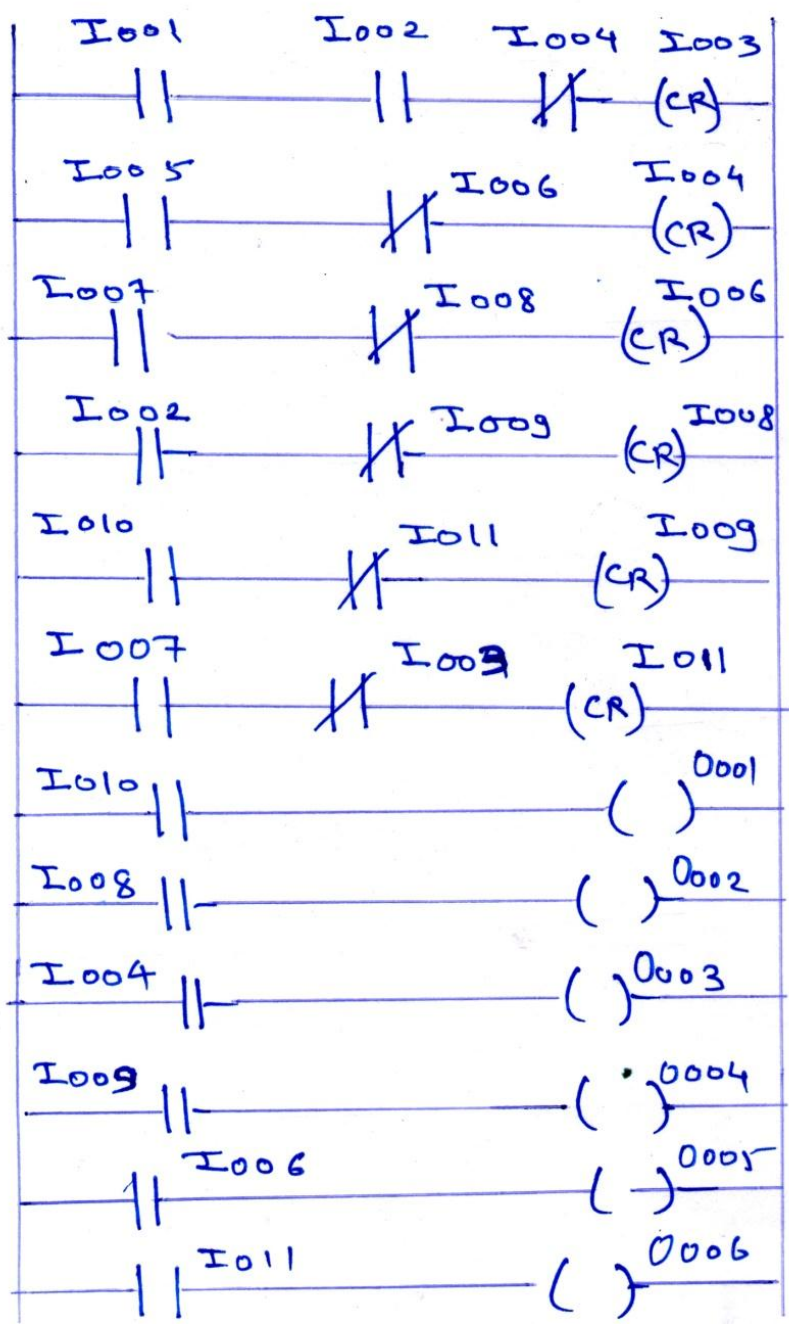 I001 I002 I004 I003
(CR)
I005 I006 I004
(CR)
I007 I008 I006
(CR)
I002 I009 I008
(CR)
I010 I011 I009
(CR)
I007 I011
(CR)
I010 0001
I008 0002
I004 0003
I009 0004
I006 0005
I011 0006